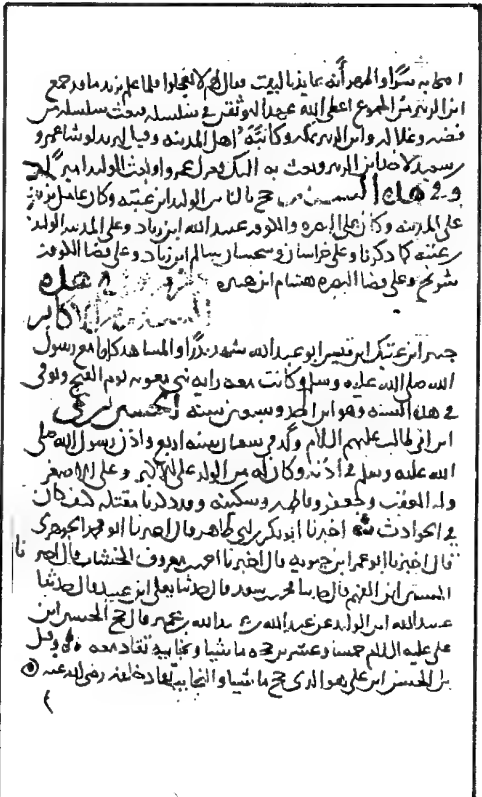 اصحابه سرا والمهر أنه عايذ بالبيت وقال لهم لا تعجلوا فلما علم يزيد ما قد جمع
ابن الزبير من الجموع اعطى الله عهدا ليوثقن في سلسلة فبعث سلسلة من
فضة وغلاله وابن الزبير بمكة وكاتبه اهل المدينة وقيل ليزيد لو شا عمرو
بن سعيد لاخذ ابن الزبير وبعث به اليك فعزل عمرو وولت الوليد اميرا
وفي هذه السنة حج بالناس الوليد ابن عتبة وكان عامل يزيد
على المدينة وكان على البصره والكوفه عبيد الله ابن زياد وعلى المدينة الوليد
بن عتبه كما ذكرنا وعلى خراسان وسجستان سالم ابن زياد وعلى قضا الكوفه
شريح وعلى قضا البصره هشام ابن هبيره ذكر من توفي في هذه
السنة من الاكابر
جبر ابن عتيك ابن قيس ابو عبد الله شهد بدرا والمشاهد كلها مع رسول
الله صلى الله عليه وسلم وكانت معه راية بني معويه يوم الفتح وتوفي
في هذه السنه وهو ابن احد وسبعين سنه الحسين بن علي
ابن ابي طالب عليهم السلام ولد في شعبان سنه اربع واذن رسول الله صلى
الله عليه وسلم في اذنه وكان له من الولد علي الاكبر وعلي الاصغر
وله العقب وجعفر وفاطمه وسكينه وقد ذكرنا مقتله كيف كان
في الحوادث اخبرنا ابو بكر بن ابي طاهر قال اخبرنا ابو محمد الجوهري
قال اخبرنا ابو عمر ابن حيويه قال اخبرنا احمد بن معروف الخشاب قال اخبرنا
الحسين ابن الفهم قال حدثنا محمد بن سعد قال حدثنا يعلى ابن عبيد قال حدثنا
عبيد الله ابن الوليد عن عبد الله بن عبيد الله بن عمير قال حج الحسين ابن
علي عليه السلام خمسا وعشرين حجه ماشيا ونجايبه تقاد معه وقيل
بل الحسن ابن علي هو الذي حج ماشيا والنجايب تقاد خلفه رضي الله عنه